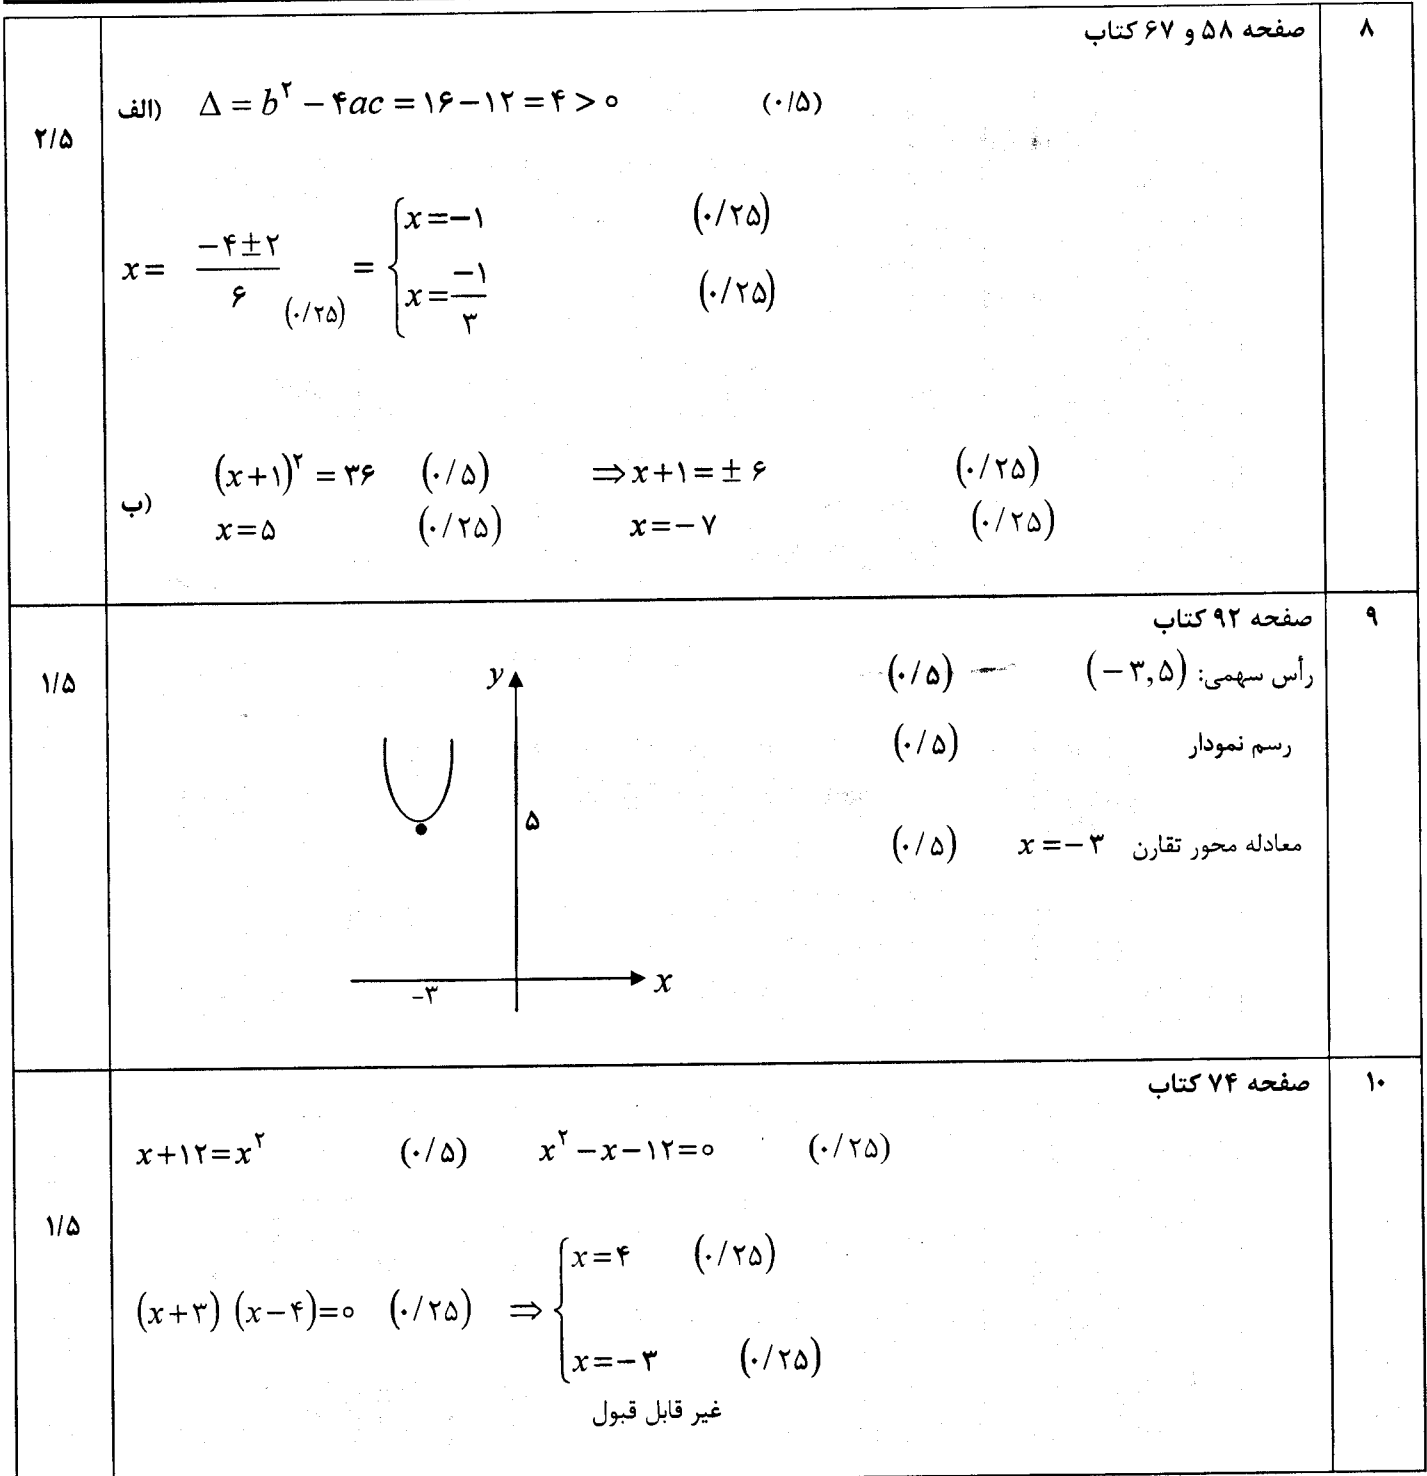 ۸
صفحه ۵۸ و ۶۷ کتاب
۲/۵
الف) Δ = b^۲ − ۴ac = ۱۶ − ۱۲ = ۴ > ۰ (۰/۵)
x = (−۴ ± ۲)/۶ (۰/۲۵) = { x = −۱ (۰/۲۵)
x = −۱/۳ (۰/۲۵)
ب) (x+۱)^۲ = ۳۶ (۰/۵) ⇒ x+۱ = ± ۶ (۰/۲۵)
x = ۵ (۰/۲۵) x = −۷ (۰/۲۵)
۹
صفحه ۹۲ کتاب
۱/۵
رأس سهمی: (−۳,۵) (۰/۵)
رسم نمودار (۰/۵)
معادله محور تقارن x = −۳ (۰/۵)
y
۵
x
−۳
۱۰
صفحه ۷۴ کتاب
۱/۵
x+۱۲=x^۲ (۰/۵) x^۲ −x−۱۲=۰ (۰/۲۵)
(x+۳) (x−۴)=۰ (۰/۲۵) ⇒ { x=۴ (۰/۲۵)
x=−۳ (۰/۲۵)
غیر قابل قبول